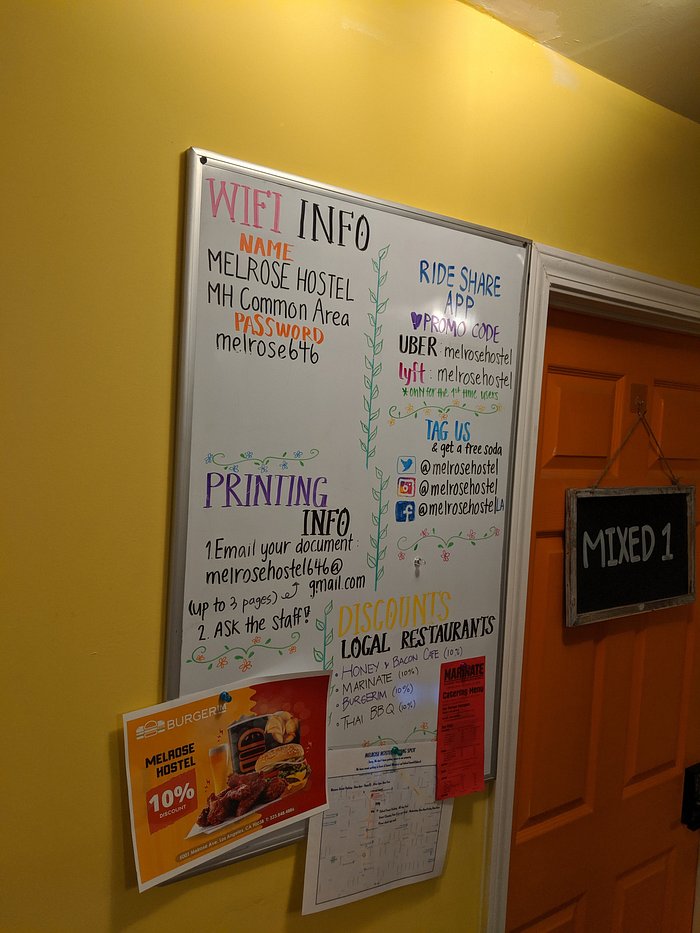 WIFI INFO
NAME
MELROSE HOSTEL
MH Common Area
PASSWORD
melrose646
PRINTING
INFO
1 Email your document:
melrosehostel646@
gmail.com
(up to 3 pages)
2. ASK the staff!
RIDE SHARE
APP
PROMO CODE
UBER: melrosehostel
lyft: melrosehostel
*only for the 1st time users
TAG US
& get a free soda
@melrosehostel
@melrosehostel
@melrosehostelLA
DISCOUNTS
LOCAL RESTAURANTS
• HONEY & BACON CAFE (10%)
• MARINATE (10%)
• BURGERIM (10%)
• THAI BBQ (10%)
MIXED 1
BURGERIM
MELROSE
HOSTEL
10%
DISCOUNT
Melrose Ave, Los Angeles, CA
MARINATE
Catering Menu
MELROSE